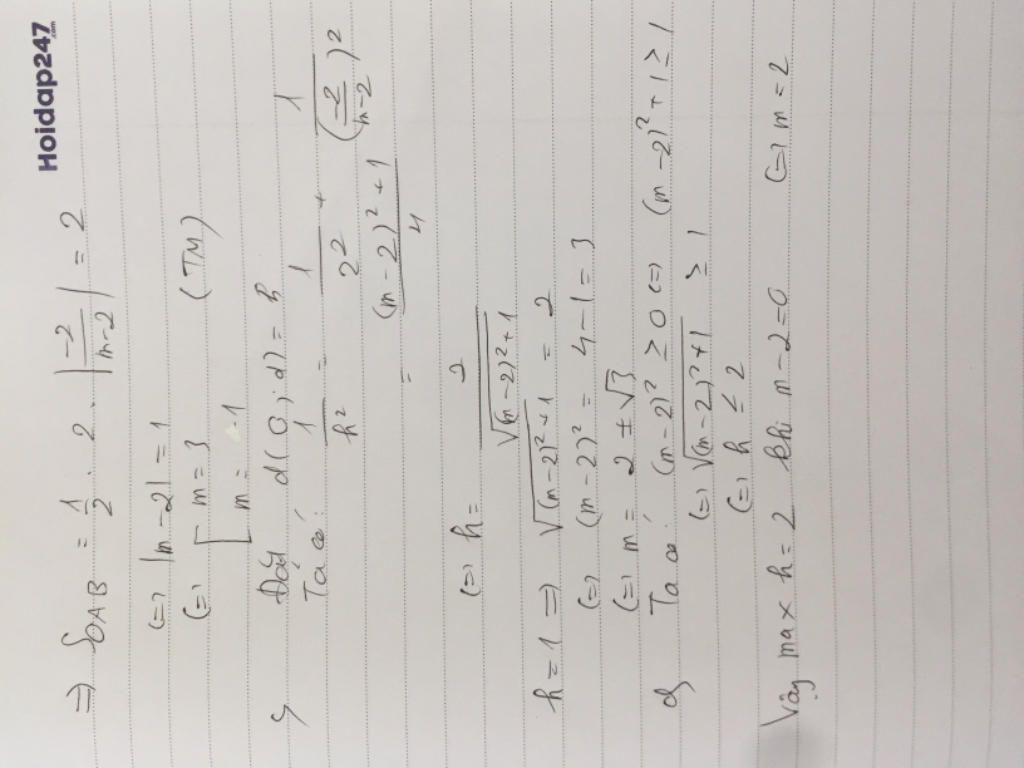 Hoidap247.com
=> S_OAB = 1/2 . 2 . |-2/(m-2)| = 2
<=> |m-2| = 1
<=> [ m = 3
m = 1 (TM)
c) Đặt d(O; d) = h
Ta có: 1/h² = 1/2² + 1/(-2/(m-2))²
= ((m-2)² + 1)/4
<=> h = 2/√((m-2)²+1)
h = 1 => √((m-2)²+1) = 2
<=> (m-2)² = 4 - 1 = 3
<=> m = 2 ± √3
d) Ta có: (m-2)² ≥ 0 <=> (m-2)² + 1 ≥ 1
<=> √((m-2)²+1) ≥ 1
<=> h ≤ 2
Vậy max h = 2 khi m - 2 = 0 <=> m = 2